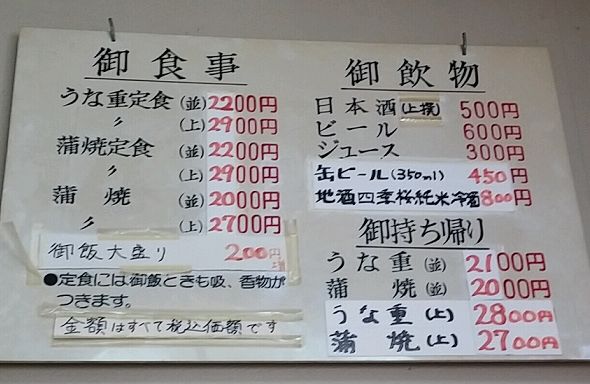 御食事
うな重定食 (並) 2200円
〃 (上) 2900円
蒲焼定食 (並) 2200円
〃 (上) 2900円
蒲焼 (並) 2000円
〃 (上) 2700円
御飯大盛り 200円増
●定食には御飯ときも吸、香物が
つきます。
金額はすべて税込価額です
御飲物
日本酒(上撰) 500円
ビール 600円
ジュース 300円
缶ビール(350ml) 450円
地酒四季桜純米冷酒800円
御持ち帰り
うな重(並) 2100円
蒲焼(並) 2000円
うな重(上) 2800円
蒲焼(上) 2700円